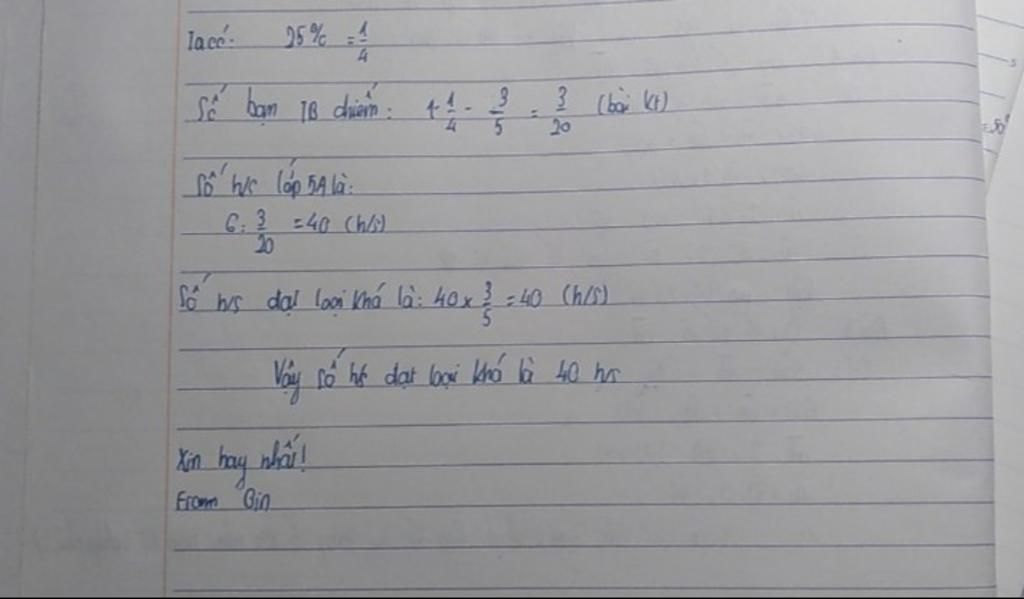 Ta có: 25% = 1/4
Số bạn TB chiếm: 1 - 1/4 - 3/5 = 3/20 (bài kt)
Số h/s lớp 5A là:
6 : 3/20 = 40 (h/s)
Số h/s đạt loại khá là: 40 x 3/5 = 40 (h/s)
Vậy số hs đạt loại khá là 40 hs
Xin hay nhất!
From Bin